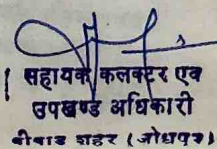 सहायक कलक्टर एवं
उपखण्ड अधिकारी
पीपाड शहर (जोधपुर)